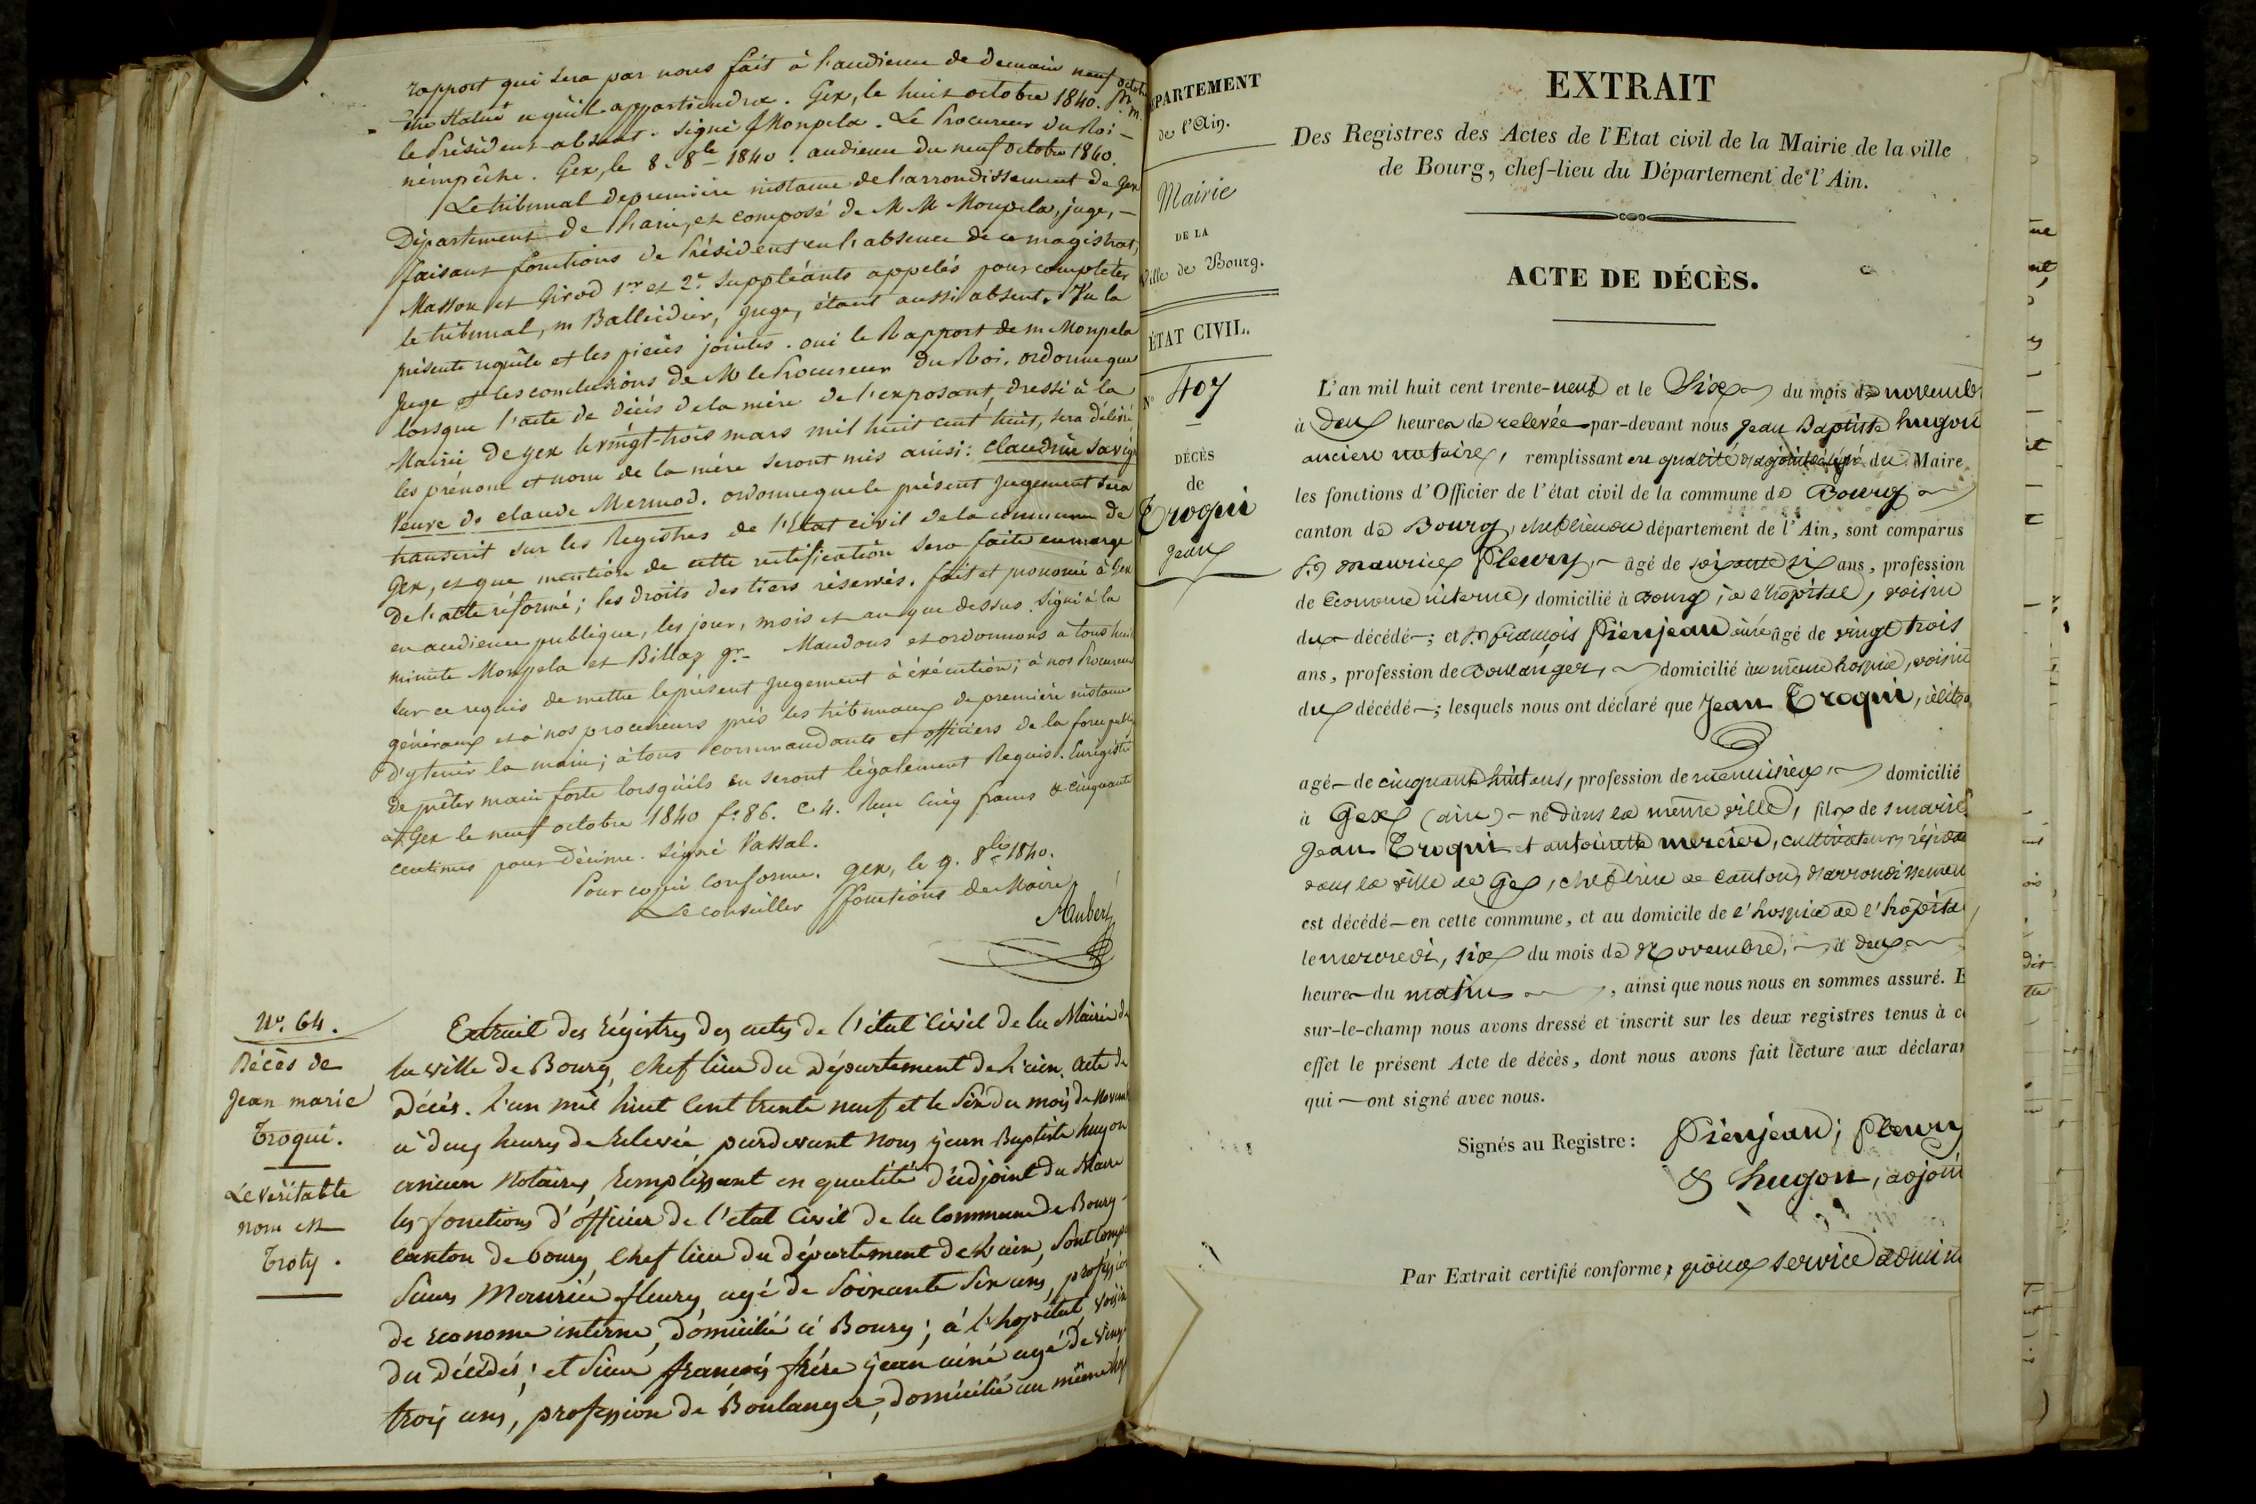 rapport qui sera par nous fait à l'audience de demain neuf octobre
être statué ce qu'il appartiendra. Gex, le huit octobre 1840. pr. m.
le Président absent. signé f Monpela. Le Procureur du Roi
n'empêche. Gex, le 8. 8bre 1840. audience du neuf octobre 1840.
Le tribunal de première instance de l'arrondissement de Gex
Département de l'ain, est composé de M M Monpela, juge,
faisant fonctions de Président en l'absence de ce magistrat,
Masson et Girod 1er et 2e suppléants appelés pour compléter
le tribunal, m Balleidier, juge, étant aussi absent. Vu la
présente requête et les pièces jointes. oui le Rapport de m Monpela
Juge et les conclusions de M le Procureur du Roi. ordonne que
lorsque l'acte de décès de la mère de l'exposant, dressé à la
Mairie de gex le vingt-trois mars mil huit cent huit, sera délivré
les prénom et nom de la mère seront mis ainsi: Claudine Savigny
Veuve de Claude Mermod. ordonne que le présent Jugement sera
transcrit sur les Registres de l'Etat civil de la commune de
Gex, et que mention de cette rectification sera faite en marge
de l'acte réformé; les droits des tiers réservés. fait et prononcé à Gex
en audience publique, les jour, mois et an que dessus. Signé à la
minute Monpela et Billaz gr. Mandons et ordonnons à tous huis
sur ce requis de mettre le présent Jugement à exécution; à nos Procureurs
généraux et à nos procureurs près les tribunaux de première instance
d'y tenir la main; à tous commandants et officiers de la force publi
de prêter main forte lorsqu'ils en seront légalement Requis. Enregistré
à Gex le neuf octobre 1840 fo 86. c 4. Reçu Cinq francs & cinquante
centimes pour décime. Signé Vassal.
Pour copie conforme. gex, le 9. 8bre 1840.
Le conseiller ffonctions de Maire
Aubert
No. 64.
Décès de
Jean marie
Troqui.
Le véritable
nom est
Troty.
Extrait des Régistres des actes de l'état Civil de la Mairie de
la ville de Bourg, chef lieu du Département de L'ain. Acte de
Décès. L'an mil huit Cent trente neuf et le Six du mois de Novemb
à deux heures de Relevée, pardevant Nous Jean Baptiste hugon
ancien Notaire, Remplissant en qualité d'adjoint du Maire
les fonctions d'officier de l'état Civil de la Commune de Bourg
canton de bourg, chef lieu du département de L'ain, Sont Comp
Sieurs Maurice fleury, agé de Soixante Six ans, profession
de Econome interne, domicilié à Bourg; à l'hopital, voisin
du Décédés; et Sieur françois frère jean ainé agé de vingt
trois ans, profession de Boulanger, domicilié au même hosp
DÉPARTEMENT
de l'Ain.
Mairie
DE LA
Ville de Bourg.
ÉTAT CIVIL.
No 407
DÉCÈS
de
Troqui
Jean
EXTRAIT
Des Registres des Actes de l'Etat civil de la Mairie de la ville
de Bourg, chef-lieu du Département de l'Ain.
ACTE DE DÉCÈS.
L'an mil huit cent trente-neuf et le Six du mois de novemb
à deux heures de relevée par-devant nous Jean Baptiste hugon
ancien notaire, remplissant en qualité d'adjoint du Maire
les fonctions d'Officier de l'état civil de la commune de Bourg
canton de Bourg, chef lieu du département de l'Ain, sont comparus
Sr maurice fleury, âgé de soixante six ans, profession
de économe interne, domicilié à Bourg, à l'hôpital, voisin
du décédé; et Sr françois Pierrjean ainé âgé de vingt trois
ans, profession de Boulanger, domicilié au même hospice, voisin
du décédé; lesquels nous ont déclaré que Jean Troqui, célib
agé de cinquante huit ans, profession de menuisier, domicilié
à Gex (ain) né dans la même ville, fils de s mariés
Jean Troqui et antoinette mercier, cultivateurs, résida
dans la ville de Gex, chef lieu de canton, d'arrondissement
est décédé en cette commune, et au domicile de l'hospice de l'hôpital
le mercredi, six du mois de Novembre, à deux
heures du matin, ainsi que nous nous en sommes assuré. E
sur-le-champ nous avons dressé et inscrit sur les deux registres tenus à c
effet le présent Acte de décès, dont nous avons fait lecture aux déclara
qui ont signé avec nous.
Signés au Registre: Pierrjean; fleury
& hugon, adjoin
Par Extrait certifié conforme, pour service admin